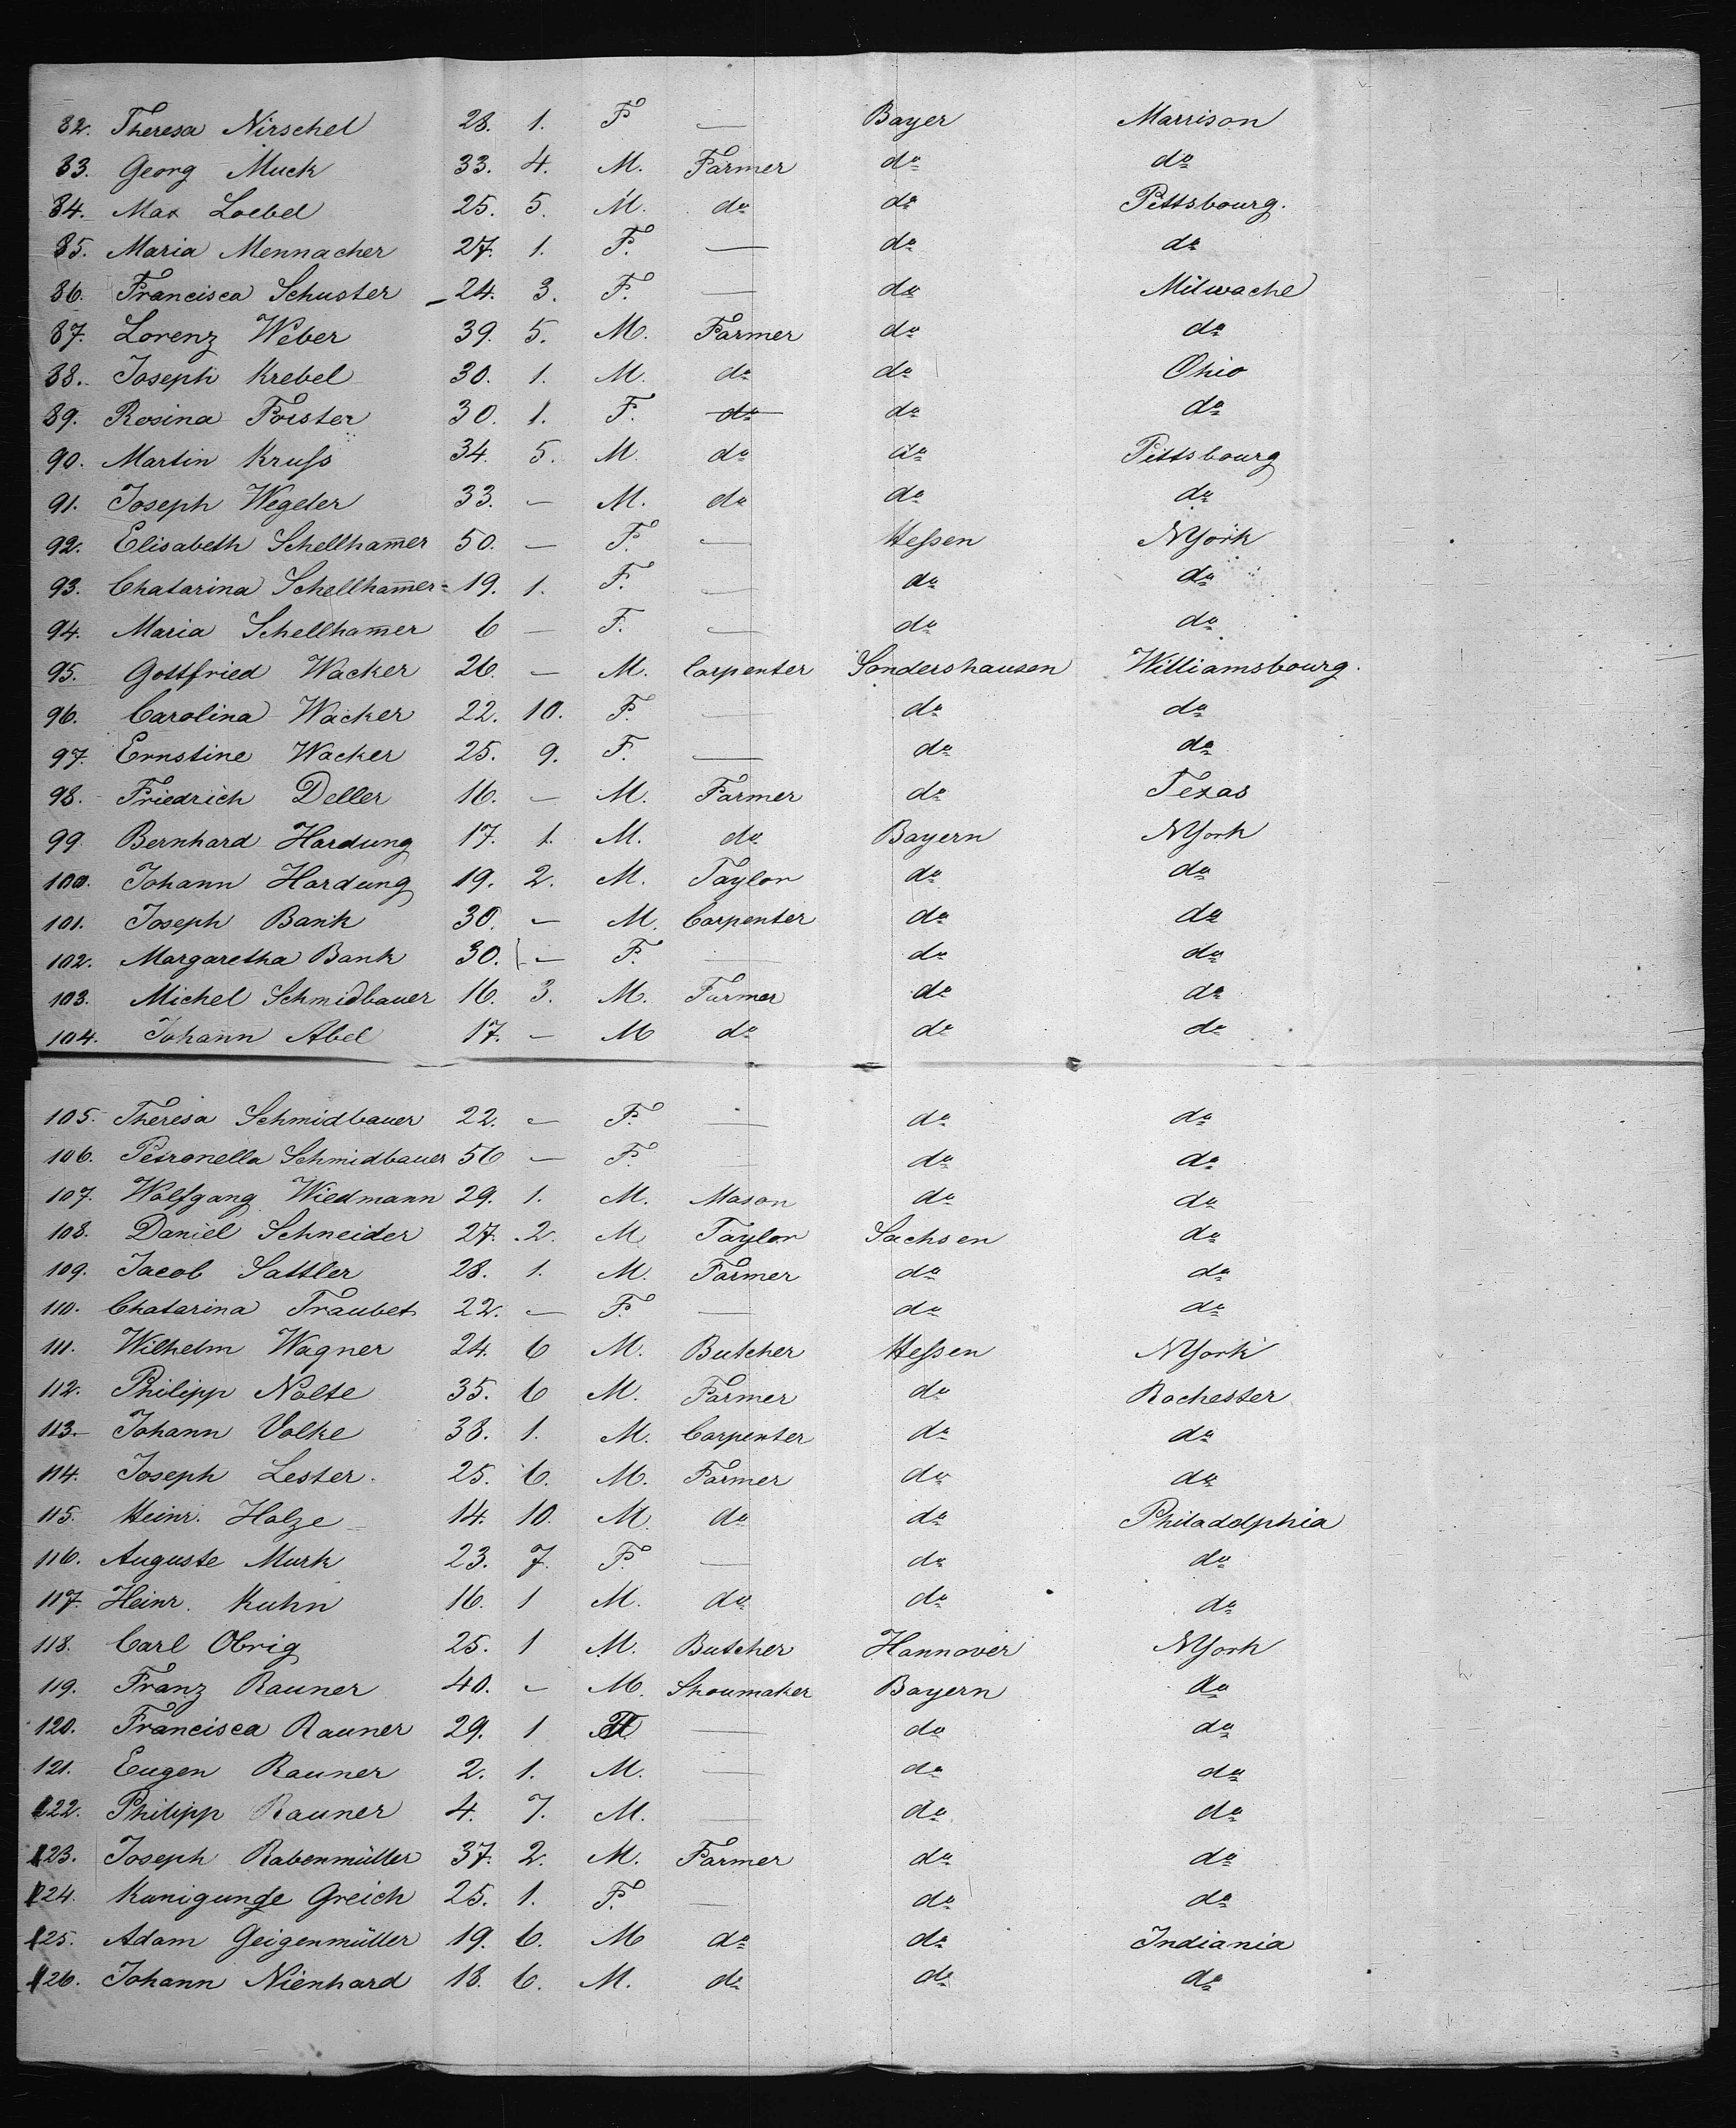 82. Theresa Nirschel 28. 1. F — Bayer Marrison
83. Georg Muck 33. 4. M. Farmer do do
84. Max Loebel 25. 5. M. do do Pittsbourg.
85. Maria Mennacher 27. 1. F. — do do
86. Francisca Schuster 24. 3. F. — do Milwache
87. Lorenz Weber 39. 5. M. Farmer do do
88. Joseph Krebel 30. 1. M. do do Ohio
89. Rosina Foister 30. 1. F. do do do
90. Martin Kruſs 34. 5. M. do do Pittsbourg
91. Joseph Wegeler 33. — M. do do do
92. Elisabeth Schellham̅er 50. — F. — Heſsen NYork
93. Chatarina Schellham̅er 19. 1. F. — do do
94. Maria Schellham̅er 6 — F. — do do
95. Gottfried Wacker 26. — M. Carpenter Sondershausen Williamsbourg.
96. Carolina Wacker 22. 10. F. — do do
97. Ernstine Wacker 25. 9. F. — do do
98. Friedrich Deller 16. — M. Farmer do Texas
99. Bernhard Hardung 17. 1. M. do Bayern NYork
100. Johann Hardung 19. 2. M. Taylor do do
101. Joseph Bank 30. — M. Carpenter do do
102. Margaretha Bank 30. — F. — do do
103. Michel Schmidbauer 16. 3. M. Farmer do do
104. Johann Abel 17. — M do do do
105. Theresa Schmidbauer 22. — F. — do do
106. Petronella Schmidbauer 56 — F. — do do
107. Wolfgang Wiedmann 29. 1. M. Mason do do
108. Daniel Schneider 27. 2. M. Taylor Sachsen do
109. Jacob Sattler 28. 1. M. Farmer do do
110. Chatarina Traubet 22. — F. — do do
111. Wilhelm Wagner 24. 6 M. Butcher Heſsen NYork
112. Philipp Nolte 35. 6 M. Farmer do Rochester
113. Johann Volke 38. 1. M. Carpenter do do
114. Joseph Lester. 25. 6. M. Farmer do do
115. Heinr. Holze 14. 10. M. do do Philadelphia
116. Auguste Murk 23. 7. F. — do do
117. Heinr. Kuhn 16. 1 M. do do do
118. Carl Obrig 25. 1 M. Butcher Hannover NYork
119. Franz Rauner 40. — M. Shoumaker Bayern do
120. Francisca Rauner 29. 1 F. — do do
121. Eugen Rauner 2. 1. M. — do do
122. Philipp Rauner 4. 7. M. — do do
123. Joseph Rabenmüller 37. 2. M. Farmer do do
124. Kunigunde Greich 25. 1. F. — do do
125. Adam Geigenmüller 19. 6. M do do Indiania
126. Johann Nienhard 18. 6. M. do do do